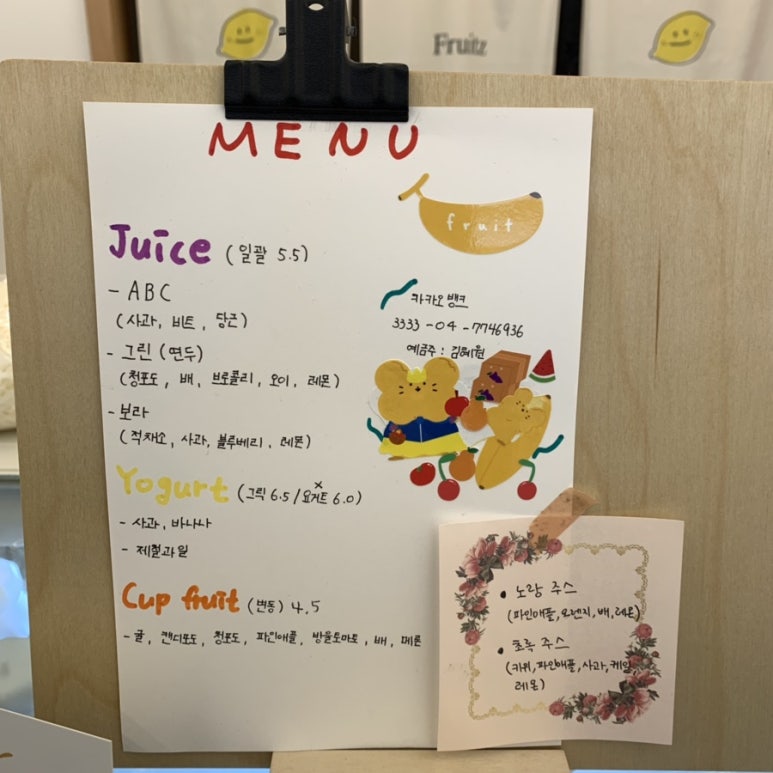 Fruitz
MENU
fruit
Juice (일괄 5.5)
- ABC
(사과, 비트, 당근)
- 그린 (연두)
(청포도, 배, 브로콜리, 오이, 레몬)
- 보라
(적채소, 사과, 블루베리, 레몬)
카카오뱅크
3333-04-7746936
예금주 : 김혜원
Yogurt (그릭 6.5 / 요거트 6.0)
- 사과, 바나나
- 제철과일
Cup fruit (변동) 4.5
- 귤, 캔디포도, 청포도, 파인애플, 방울토마토, 배, 메론
• 노랑 주스
(파인애플, 오렌지, 배, 레몬)
• 초록 주스
(키위, 파인애플, 사과, 케일,
레몬)